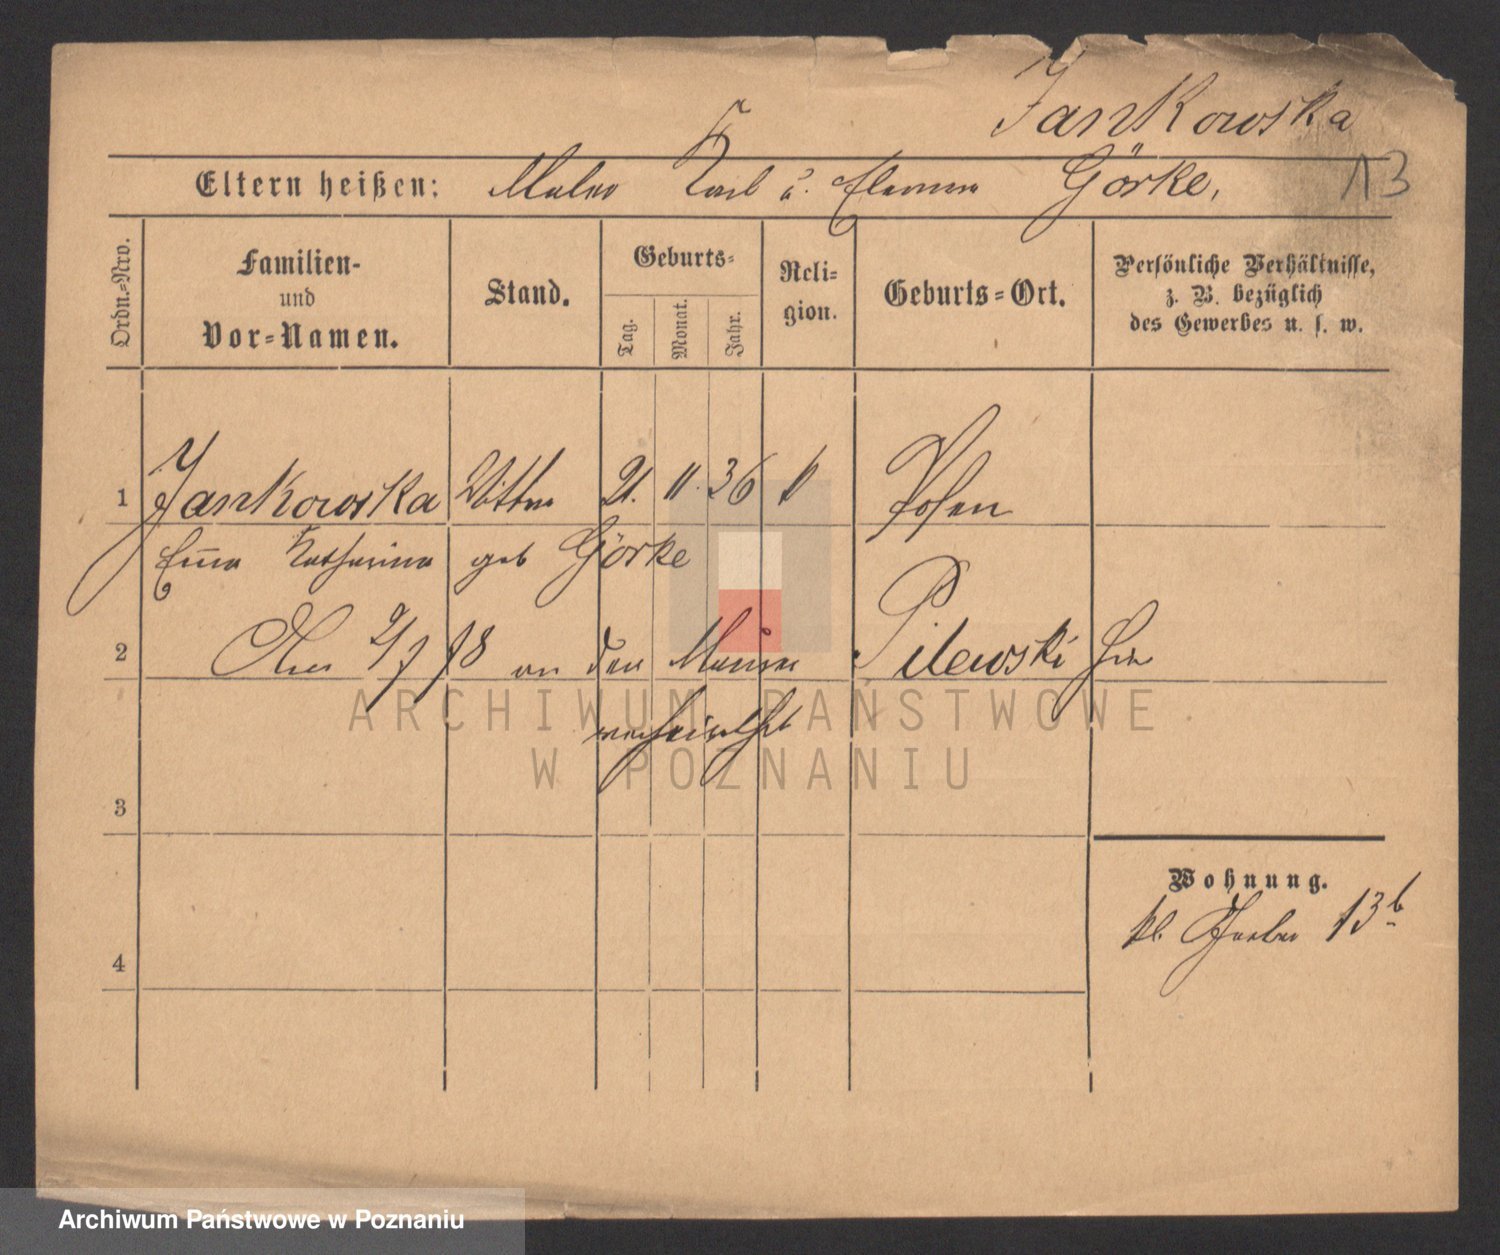 Jankowska
Eltern heißen: Maler Karl u. Görke, 13
Ordn.-Nro.
Familien-
und
Vor-Namen.
Stand.
Geburts-
Tag.
Monat.
Jahr.
Reli-
gion.
Geburts-Ort.
Persönliche Verhältnisse,
z. B. bezüglich
des Gewerbes u. s. w.
1 Jankowska 21. 11. 36 k Posen
Emma Katharina geb Görke
2 Am an den Maurer Pilewski hier
verheirathet
3
4
Wohnung.
kl. Gerber 13b
ARCHIWUM PAŃSTWOWE
W POZNANIU
Archiwum Państwowe w Poznaniu